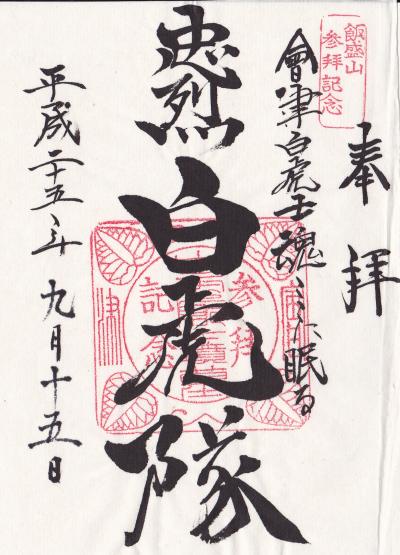 飯盛山
参拝記念
奉拝
會津白虎士魂ここに眠る
忠烈
白虎隊
平成二十五年九月十五日